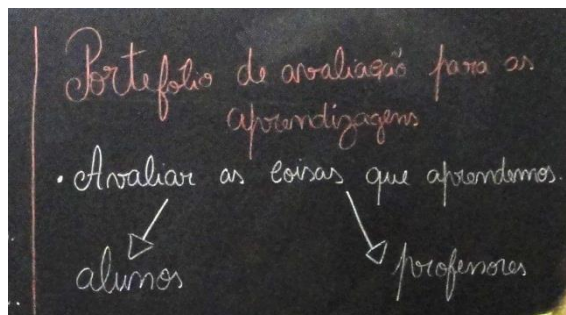 Portefolio de avaliação para as
aprendizagens
• Avaliar as coisas que aprendemos.
alunos professores